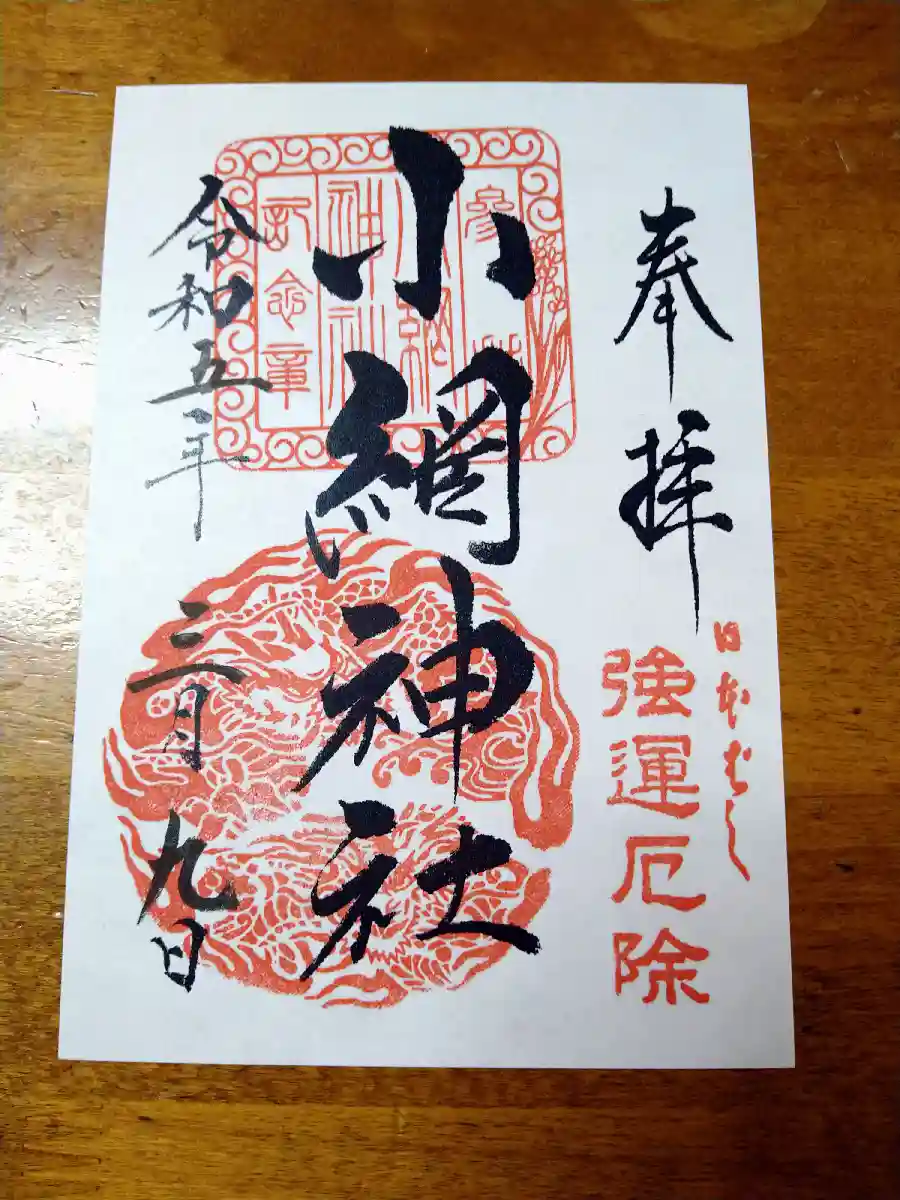 奉拝
日本ばし
強運厄除
小網神社
参拝
小網
神社
記念章
令和五年
三月九日